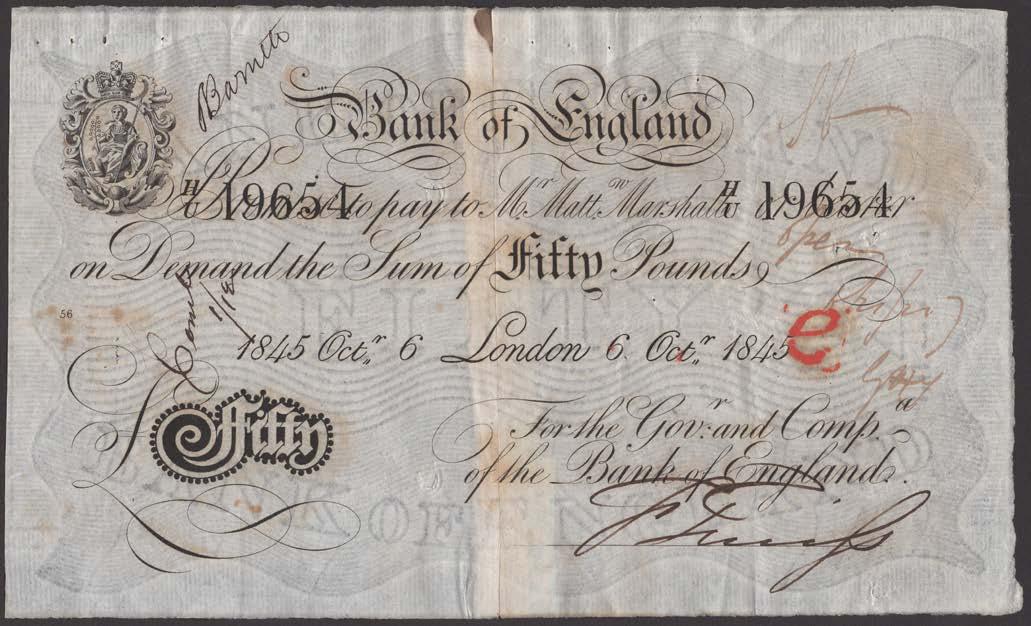 Bank of England
I Promise to pay to Mr. Mattw. Marshall or bearer
H/U 19654 H/U 19654
on Demand the Sum of Fifty Pounds
56
1845 Octr. 6 London 6 Octr. 1845
e
Fifty
For the Govr. and Compa.
of the Bank of England.
FIFTY